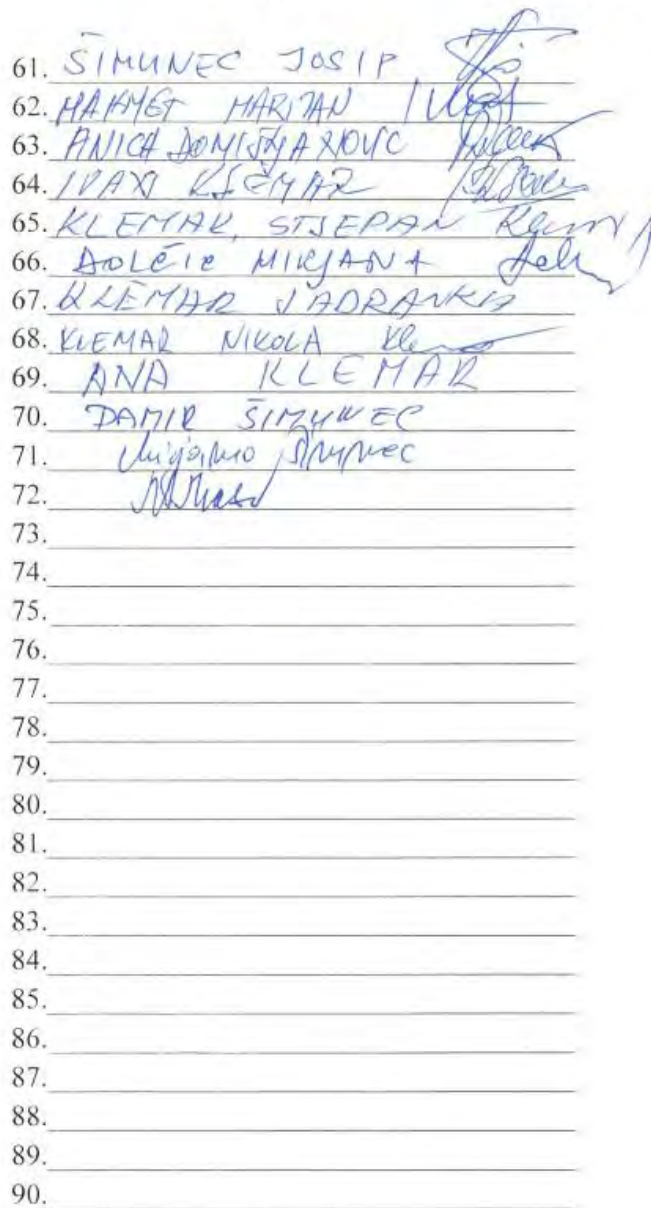 61. ŠIMUNEC JOSIP
62. MAHMET MARIJAN
63. ANICA DOMITNJAKOVIC
64. IVAN KLEMAR
65. KLEMAR, STJEPAN
66. DOLČIĆ MIRJANA
67. KLEMAR JADRANKA
68. KLEMAR NIKOLA
69. ANA KLEMAR
70. DAMIR ŠIMUNEC
71.
72.
73.
74.
75.
76.
77.
78.
79.
80.
81.
82.
83.
84.
85.
86.
87.
88.
89.
90.